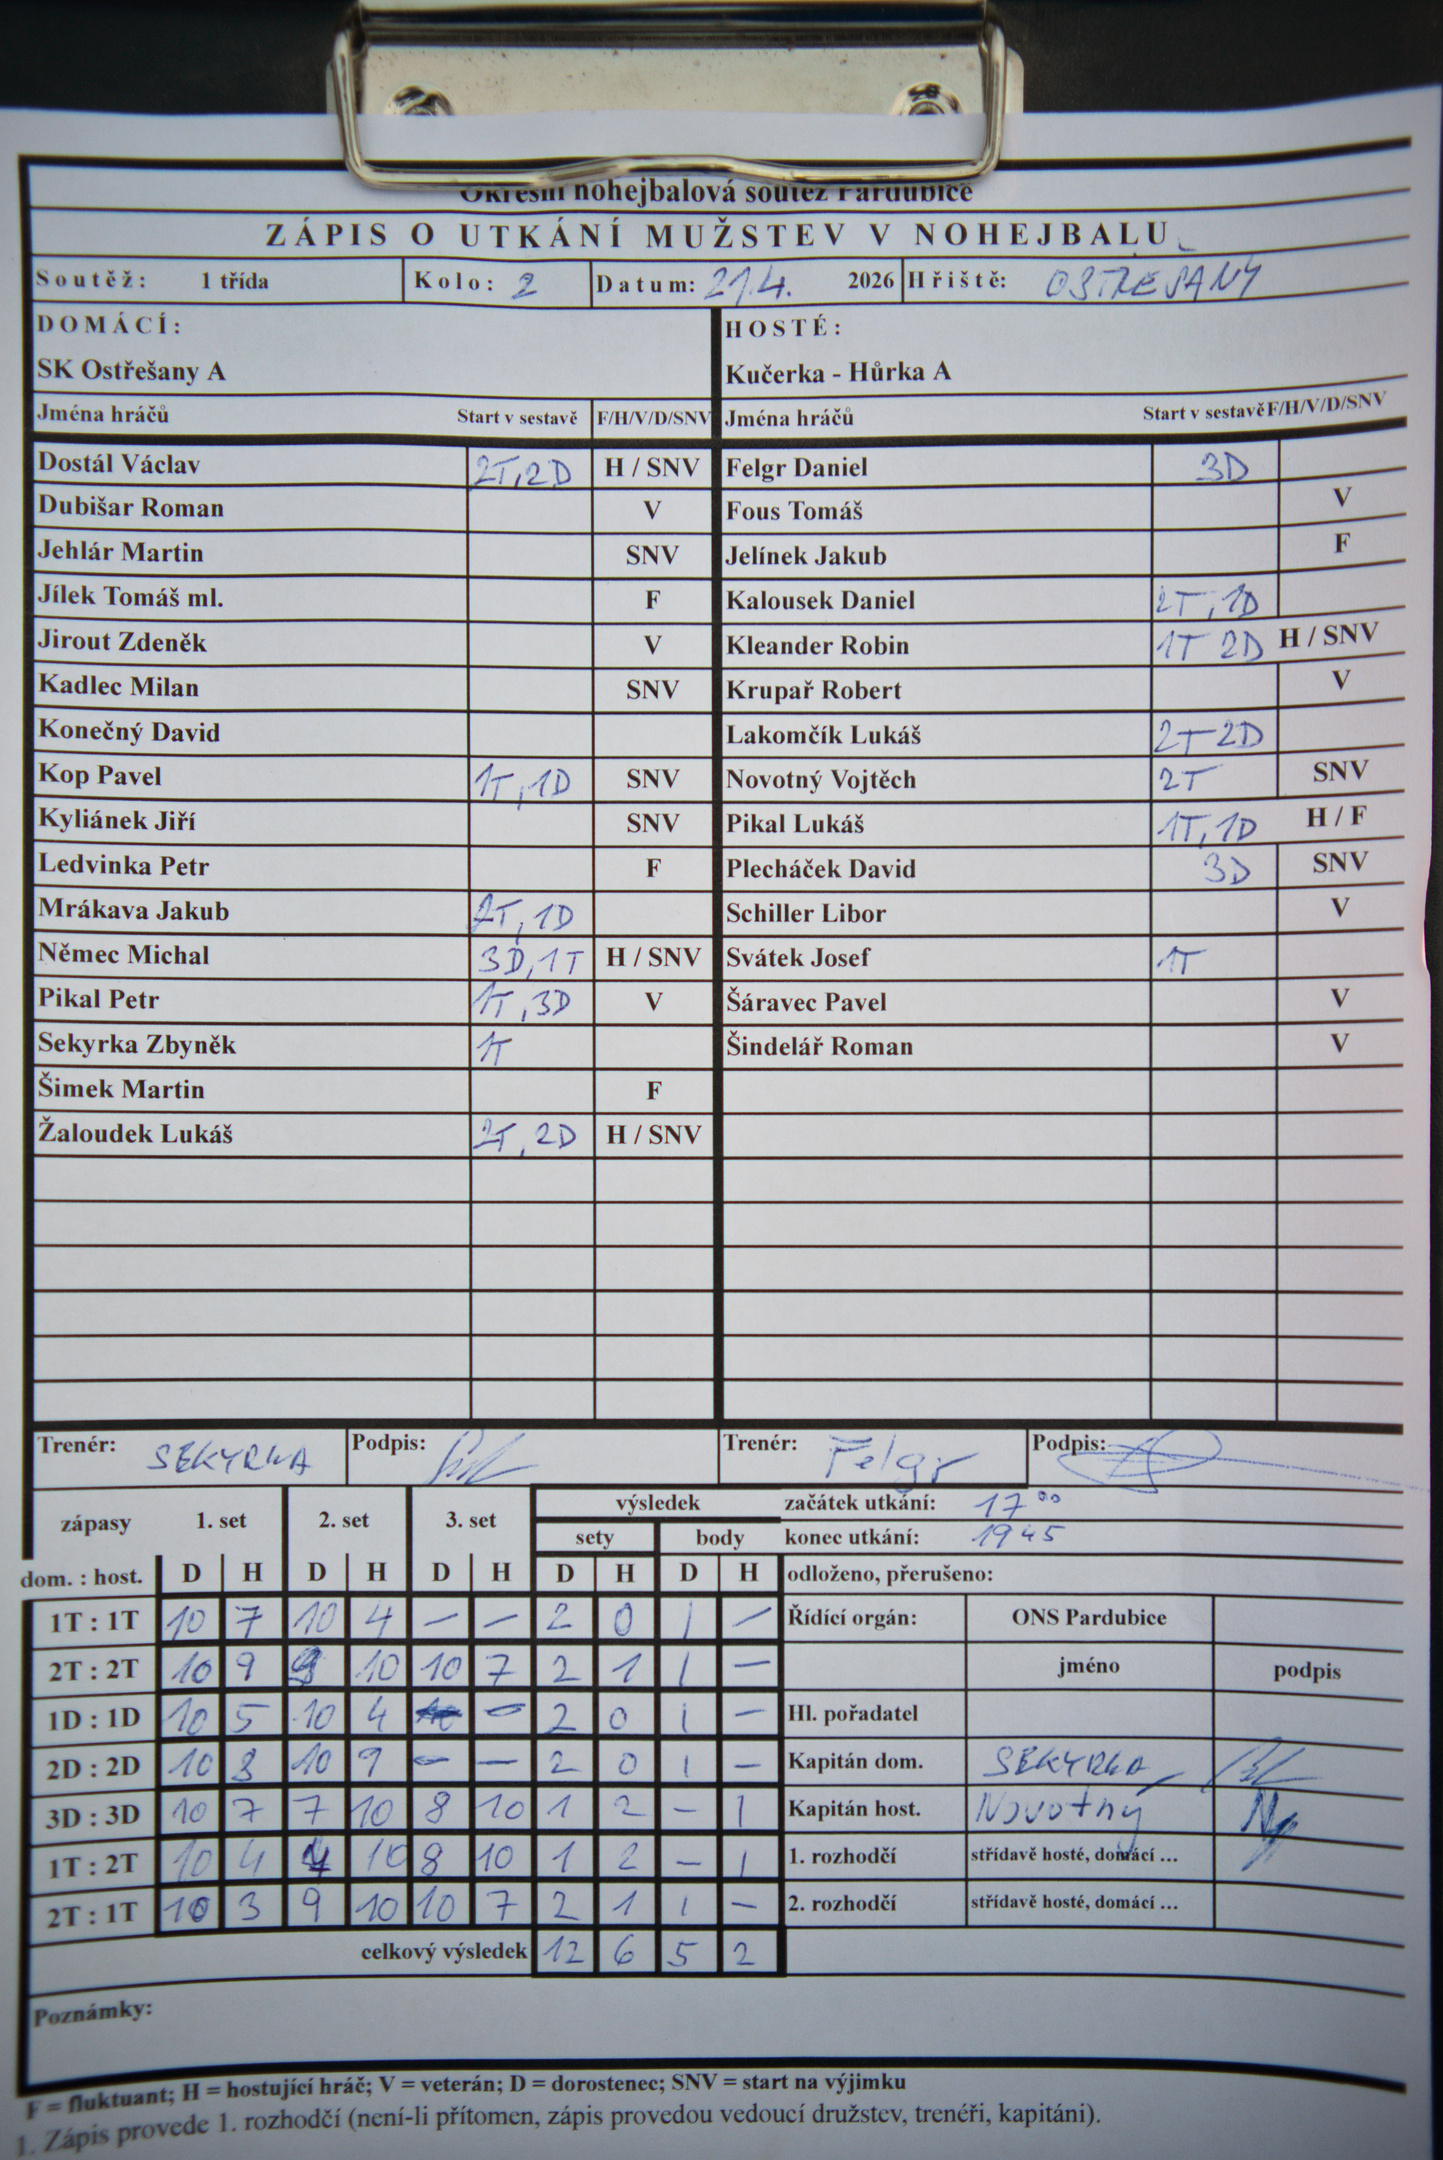 Okresní nohejbalová soutěž Pardubice
ZÁPIS O UTKÁNÍ MUŽSTEV V NOHEJBALU
Soutěž: 1 třída Kolo: 2 Datum: 21.4. 2026 Hřiště: OSTŘEŠANY
DOMÁCÍ: HOSTÉ:
SK Ostřešany A Kučerka - Hůrka A
Jména hráčů Start v sestavě F/H/V/D/SNV Jména hráčů Start v sestavě F/H/V/D/SNV
Dostál Václav 2T,2D H / SNV Felgr Daniel 3D
Dubišar Roman V Fous Tomáš V
Jehlár Martin SNV Jelínek Jakub F
Jílek Tomáš ml. F Kalousek Daniel 2T,1D
Jirout Zdeněk V Kleander Robin 1T 2D H / SNV
Kadlec Milan SNV Krupař Robert V
Konečný David Lakomčík Lukáš 2T 2D
Kop Pavel 1T,1D SNV Novotný Vojtěch 2T SNV
Kyliánek Jiří SNV Pikal Lukáš 1T,1D H / F
Ledvinka Petr F Plecháček David 3D SNV
Mrákava Jakub 2T,1D Schiller Libor V
Němec Michal 3D,1T H / SNV Svátek Josef 1T
Pikal Petr 1T,3D V Šáravec Pavel V
Sekyrka Zbyněk 1T Šindelář Roman V
Šimek Martin F
Žaloudek Lukáš 2T,2D H / SNV
Trenér: SEKYRKA Podpis: Trenér: Felgr Podpis:
zápasy 1. set 2. set 3. set výsledek začátek utkání: 17 00
sety body konec utkání: 19 45
dom. : host. D H D H D H D H D H odloženo, přerušeno:
1T : 1T 10 7 10 4 – – 2 0 1 – Řídící orgán: ONS Pardubice
2T : 2T 10 9 9 10 10 7 2 1 1 – jméno podpis
1D : 1D 10 5 10 4 – 2 0 1 – Hl. pořadatel
2D : 2D 10 8 10 9 – – 2 0 1 – Kapitán dom. SEKYRKA
3D : 3D 10 7 7 10 8 10 1 2 – 1 Kapitán host. Novotný
1T : 2T 10 4 4 10 8 10 1 2 – 1 1. rozhodčí střídavě hosté, domácí ...
2T : 1T 10 3 9 10 10 7 2 1 1 – 2. rozhodčí střídavě hosté, domácí ...
celkový výsledek 12 6 5 2
Poznámky:
F = fluktuant; H = hostující hráč; V = veterán; D = dorostenec; SNV = start na výjimku
1. Zápis provede 1. rozhodčí (není-li přítomen, zápis provedou vedoucí družstev, trenéři, kapitáni).